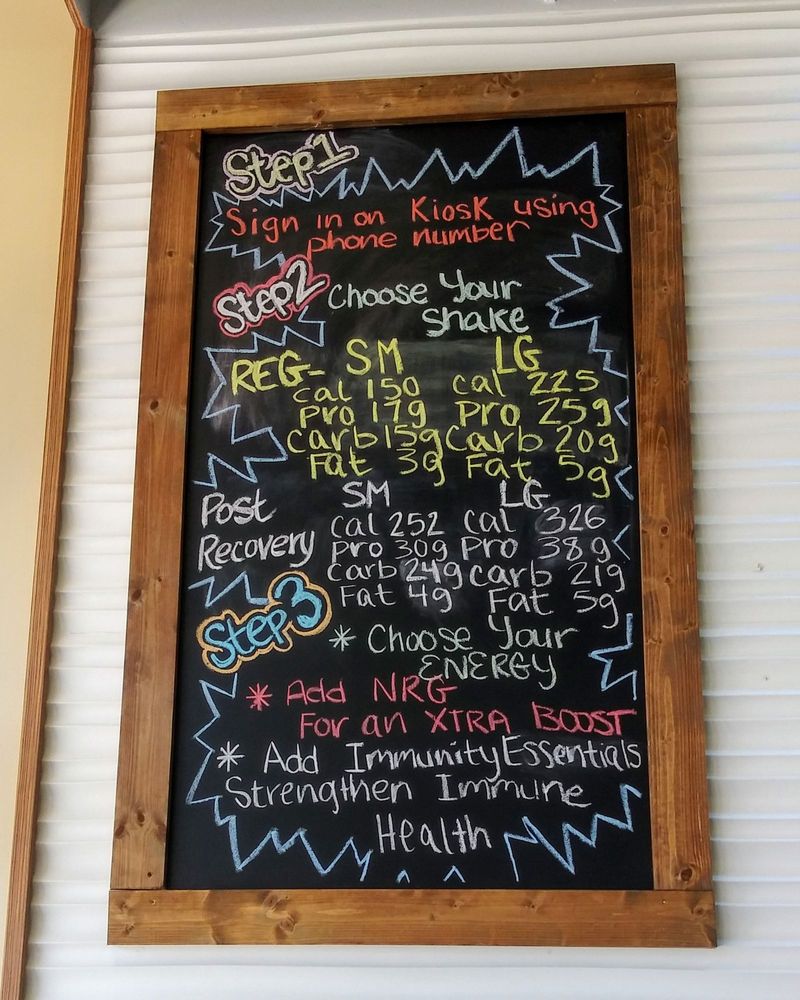 Step 1
Sign in on Kiosk using
phone number
Step 2 Choose Your
Shake
REG- SM LG
cal 150 cal 225
pro 17g Pro 25g
carb 15g Carb 20g
Fat 3g Fat 5g
Post SM LG
Recovery cal 252 cal 326
pro 30g Pro 38g
carb 24g carb 21g
Fat 4g Fat 5g
Step 3 * Choose Your
ENERGY
* Add NRG
For an XTRA BOOST
* Add Immunity Essentials
Strengthen Immune
Health